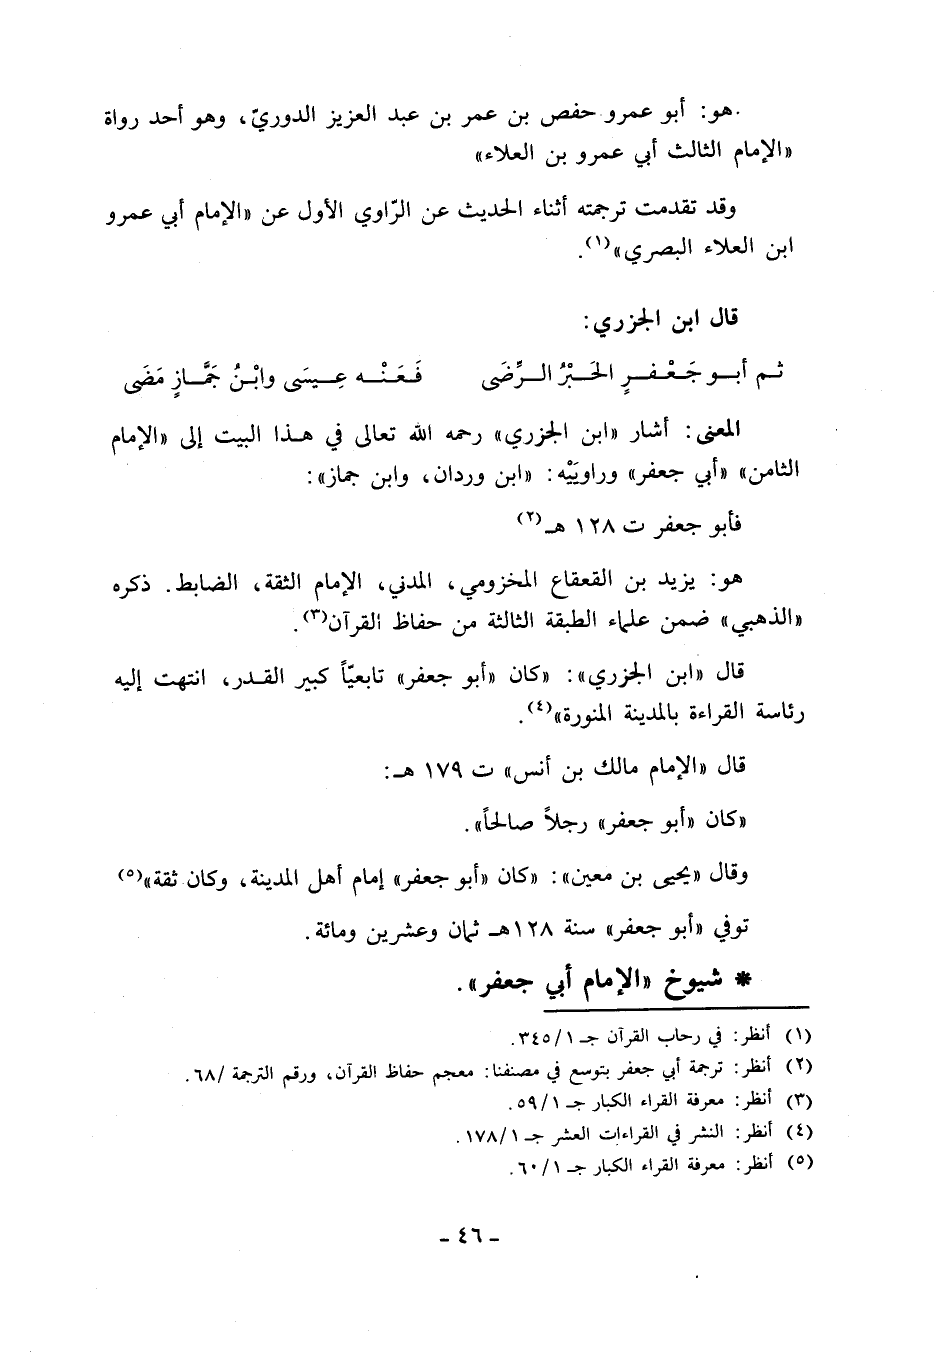 هو: أبو عمرو حفص بن عمر بن عبد العزيز الدوريّ، وهو أحد رواة
«الإمام الثالث أبي عمرو بن العلاء»
وقد تقدمت ترجمته أثناء الحديث عن الرّاوي الأول عن «الإمام أبي عمرو
ابن العلاء البصري»(١).
قال ابن الجزري:
ثم أبو جَعْفرٍ الحَبْرُ الرِّضَى فَعَنْه عِيسَى وابْنُ جَمَّازٍ مَضَى
المعنى: أشار «ابن الجزري» رحمه الله تعالى في هذا البيت إلى «الإمام
الثامن» «أبي جعفر» وراويَيْه: «ابن وردان، وابن جماز»:
فأبو جعفر ت ١٢٨ هـ(٢)
هو: يزيد بن القعقاع المخزومي، المدني، الإمام الثقة، الضابط. ذكره
«الذهبي» ضمن علماء الطبقة الثالثة من حفاظ القرآن(٣).
قال «ابن الجزري»: «كان «أبو جعفر» تابعيّاً كبير القدر، انتهت إليه
رئاسة القراءة بالمدينة المنورة»(٤).
قال «الإمام مالك بن أنس» ت ١٧٩ هـ:
«كان «أبو جعفر» رجلاً صالحاً».
وقال «يحيى بن معين»: «كان «أبو جعفر» إمام أهل المدينة، وكان ثقة»(٥)
توفي «أبو جعفر» سنة ١٢٨هـ ثمان وعشرين ومائة.
* شيوخ «الإمام أبي جعفر».
(١) أنظر: في رحاب القرآن جـ ٣٤٥/١.
(٢) أنظر: ترجمة أبي جعفر بتوسع في مصنفنا: معجم حفاظ القرآن، ورقم الترجمة /٦٨.
(٣) أنظر: معرفة القراء الكبار جـ ٥٩/١.
(٤) أنظر: النشر في القراءات العشر جـ ١٧٨/١.
(٥) أنظر: معرفة القراء الكبار جـ ٦٠/١.
- ٤٦ -